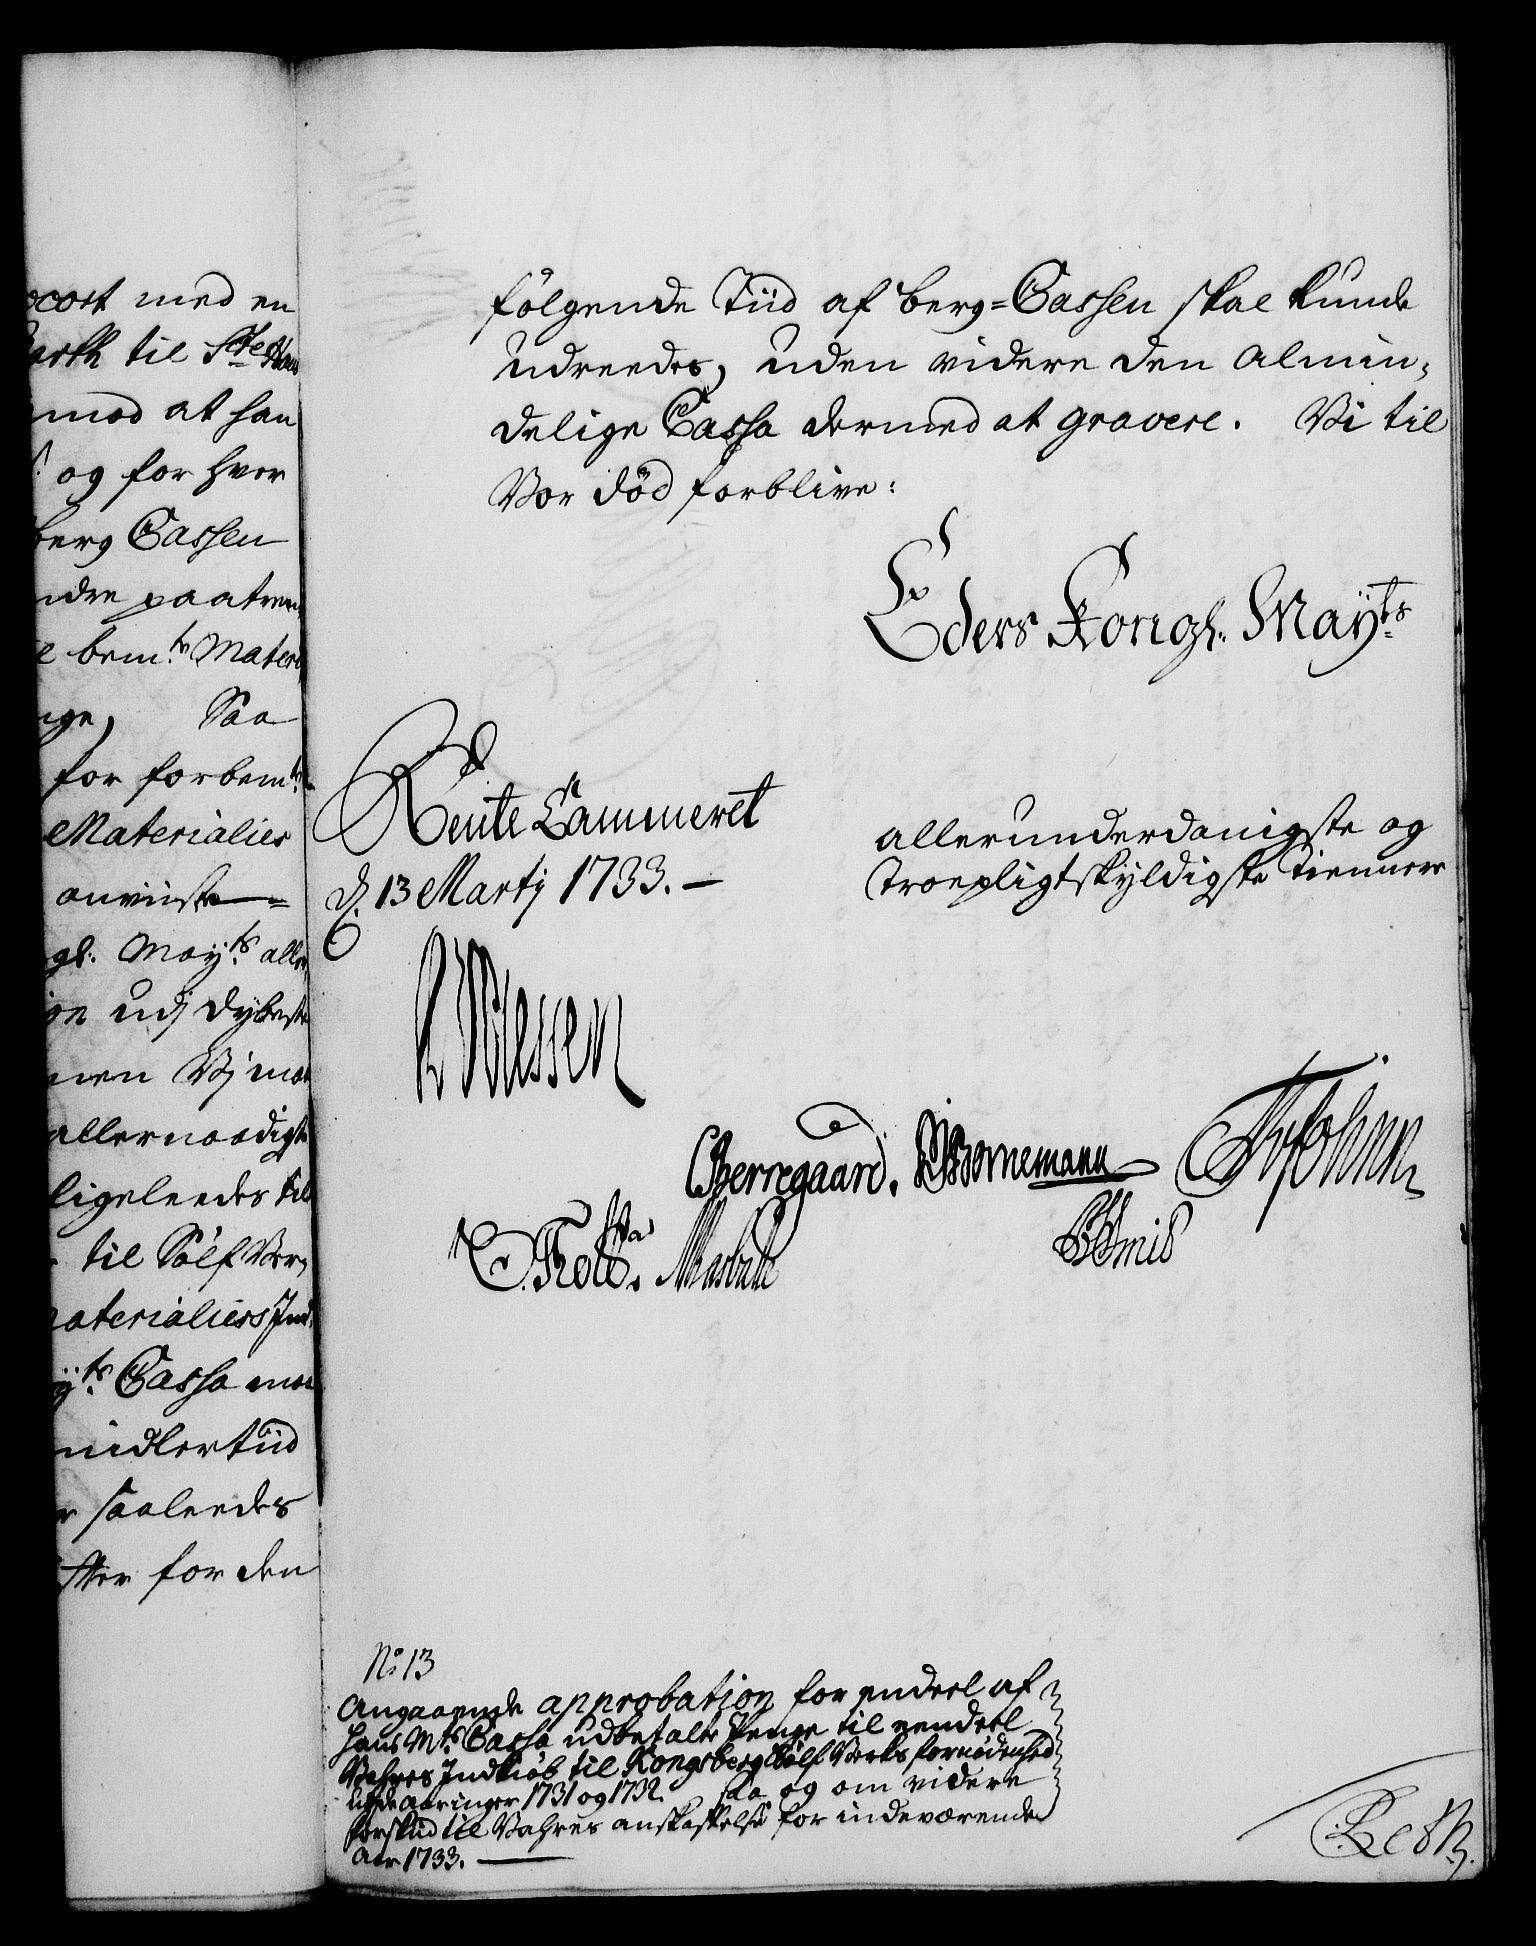 ocort med en
til Ste Hans
mod at han
og for hver
berg Cassen
ndre paatren
e bemte Materi
nge, Saa
for forbemte
Materialier
anviiste
gl. Mayts aller
udj dybeste
men Vj maa
allernaadigst
ligeleedes til
til Sølf Ver,
materialiers Ind,
yts Cassa maa
midlertiid
r saaleedes
fter for den
følgende Tiid af berg=Cassen skal kunde
udreedes, uden videre den Almin,
delige Cassa dermed at gravere. Vi til
Vor død forblive:
Eders Kongl. Mayts
Rente Cammeret
d. 13 Martj 1733.–
allerunderdanigste og
Troepligtskyldigste Tiennere
Wessen
CBerregaard. Bornemann
N: 13
Angaaende approbation for endeel af
Hans Mts Cassa udbetalte Penge til eendeel
Vahres Indkiøb til Kongsberg Sølf Verks fornødenhed
udj de aaringer 1731 og 1732. saa og om videre
forskud til Vahres anskaffelse for indeværende
Aar 1733.